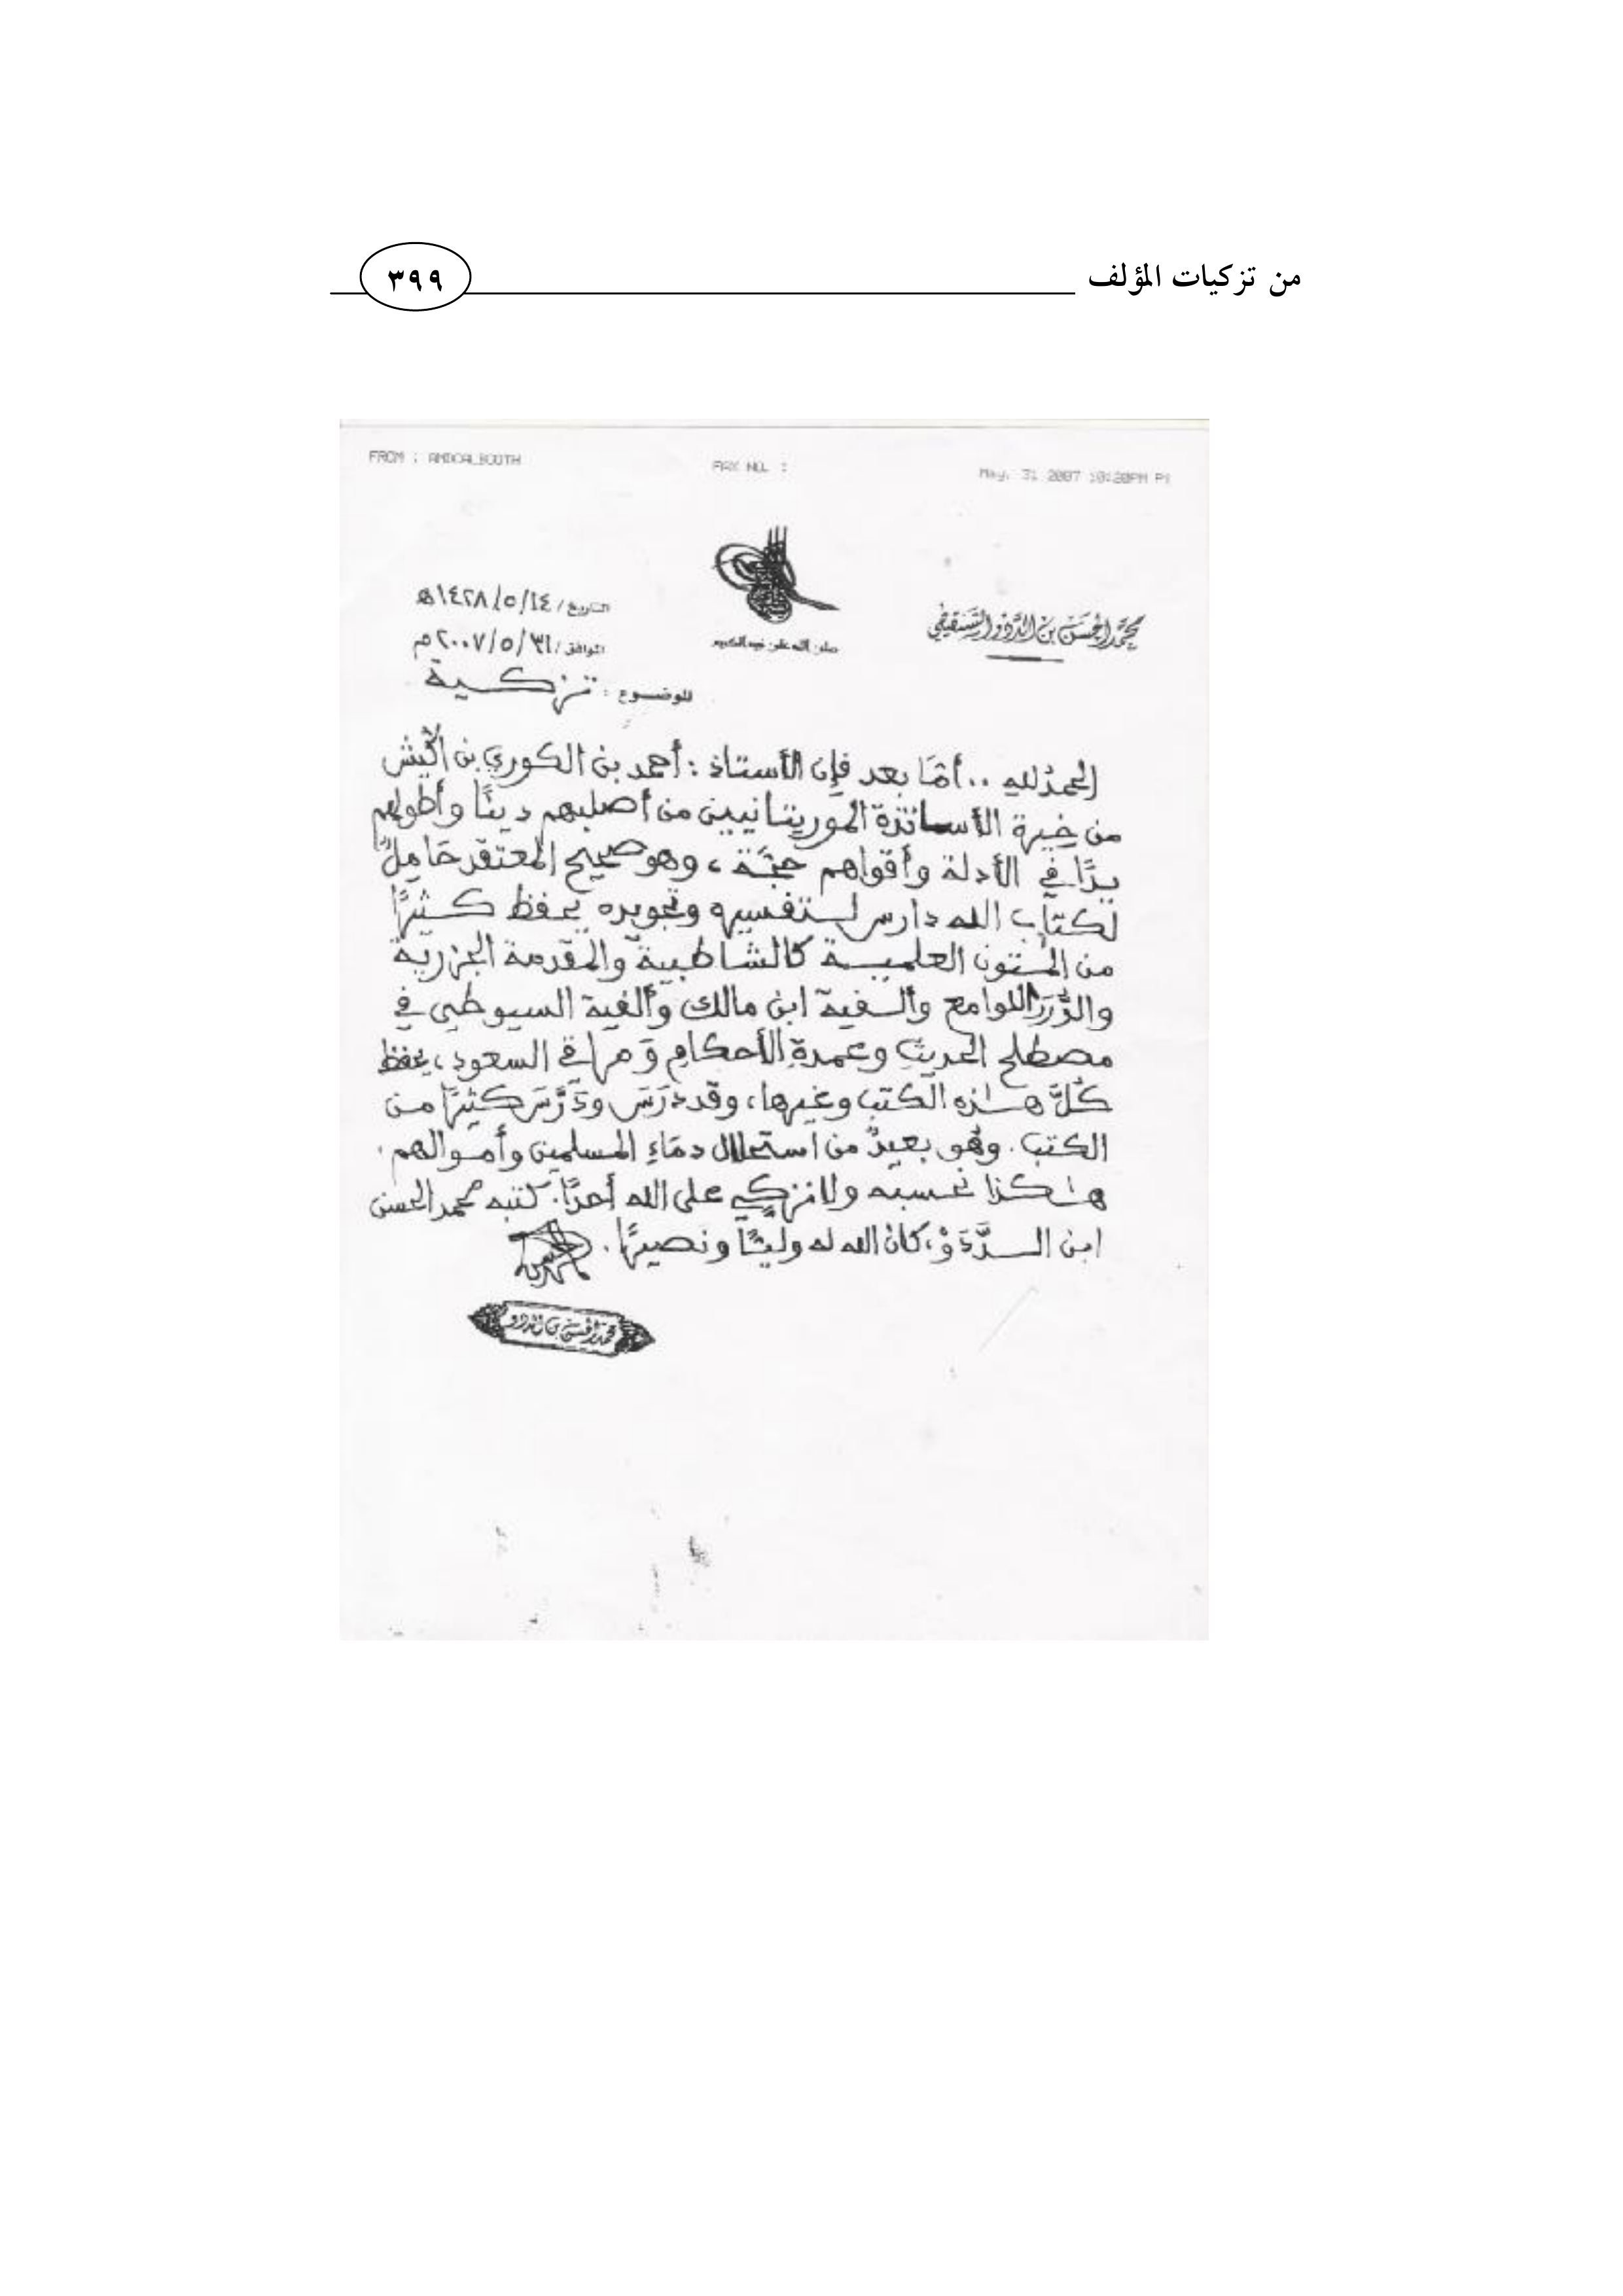 من تزكيات المؤلف ٣٩٩
FROM : FAX NO. : May. 31 2007 10:20PM P1
محمد الحسن بن الددو الشنقيطي
صلى الله على نبيه الكريم
التاريخ / ١٤ / ٥ / ١٤٢٨ هـ
الموافق / ٣١ / ٥ / ٢٠٠٧ م
الموضوع : تزكية
الحمدُ للهِ .. أمَّا بعد فإن الأستاذ : أحمد بن الكوري بن
من خيرة الأساتذة الموريتانيين من أصلبهم دينًا وأطولهم
يدًا في الأدلة وأقواهم حجَّة ، وهو صحيح المعتقد حَاملٌ
لكتاب الله دارس لتفسيره وتجويده يحفظ كثيرًا
من المتون العلمية كالشاطبية والمقدمة الجزرية
والدُّرَر اللوامع وألفية ابن مالك وألفية السيوطي في
مصطلح الحديثِ وعمدةِ الأحكامِ وَمراقي السعود ، يحفظ
كُلَّ هٰذه الكتب وغيرها ، وقد دَرَسَ وَدَرَّسَ كثيرًا من
الكتب . وهُو بعيدٌ من استحلال دمَاءِ المسلمين وأموالهم .
هٰكذا نحسبه ولا نزكي على الله أحدًا . كتبه محمد الحسن
ابن الدَّدَوْ ، كانَ الله له وليًّا ونصيرًا .
محمد الحسن بن الددو